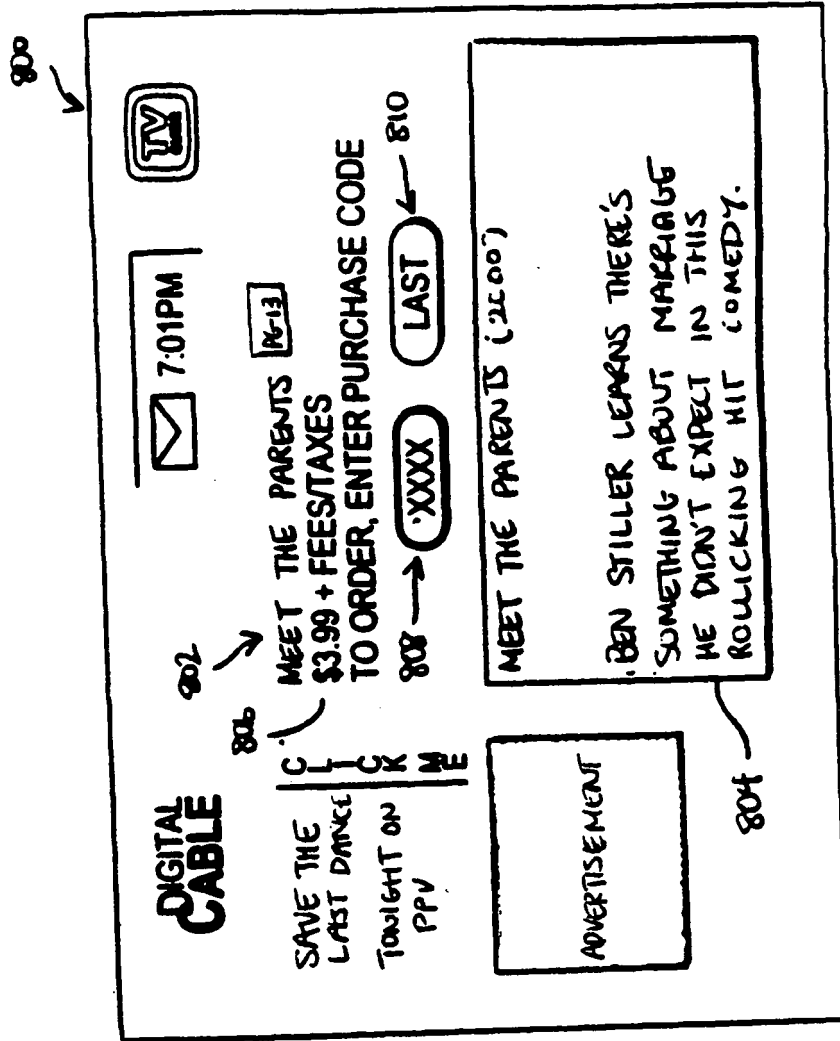 800
DIGITAL
CABLE
7:01PM
TV
802
806
SAVE THE
LAST DANCE
TONIGHT ON
PPV
CLICK ME
MEET THE PARENTS PG-13
$3.99 + FEES/TAXES
TO ORDER, ENTER PURCHASE CODE
808
XXXX
LAST
810
ADVERTISEMENT
MEET THE PARENTS (2000)
BEN STILLER LEARNS THERE'S
SOMETHING ABOUT MARRIAGE
HE DIDN'T EXPECT IN THIS
ROLLICKING HIT COMEDY.
804